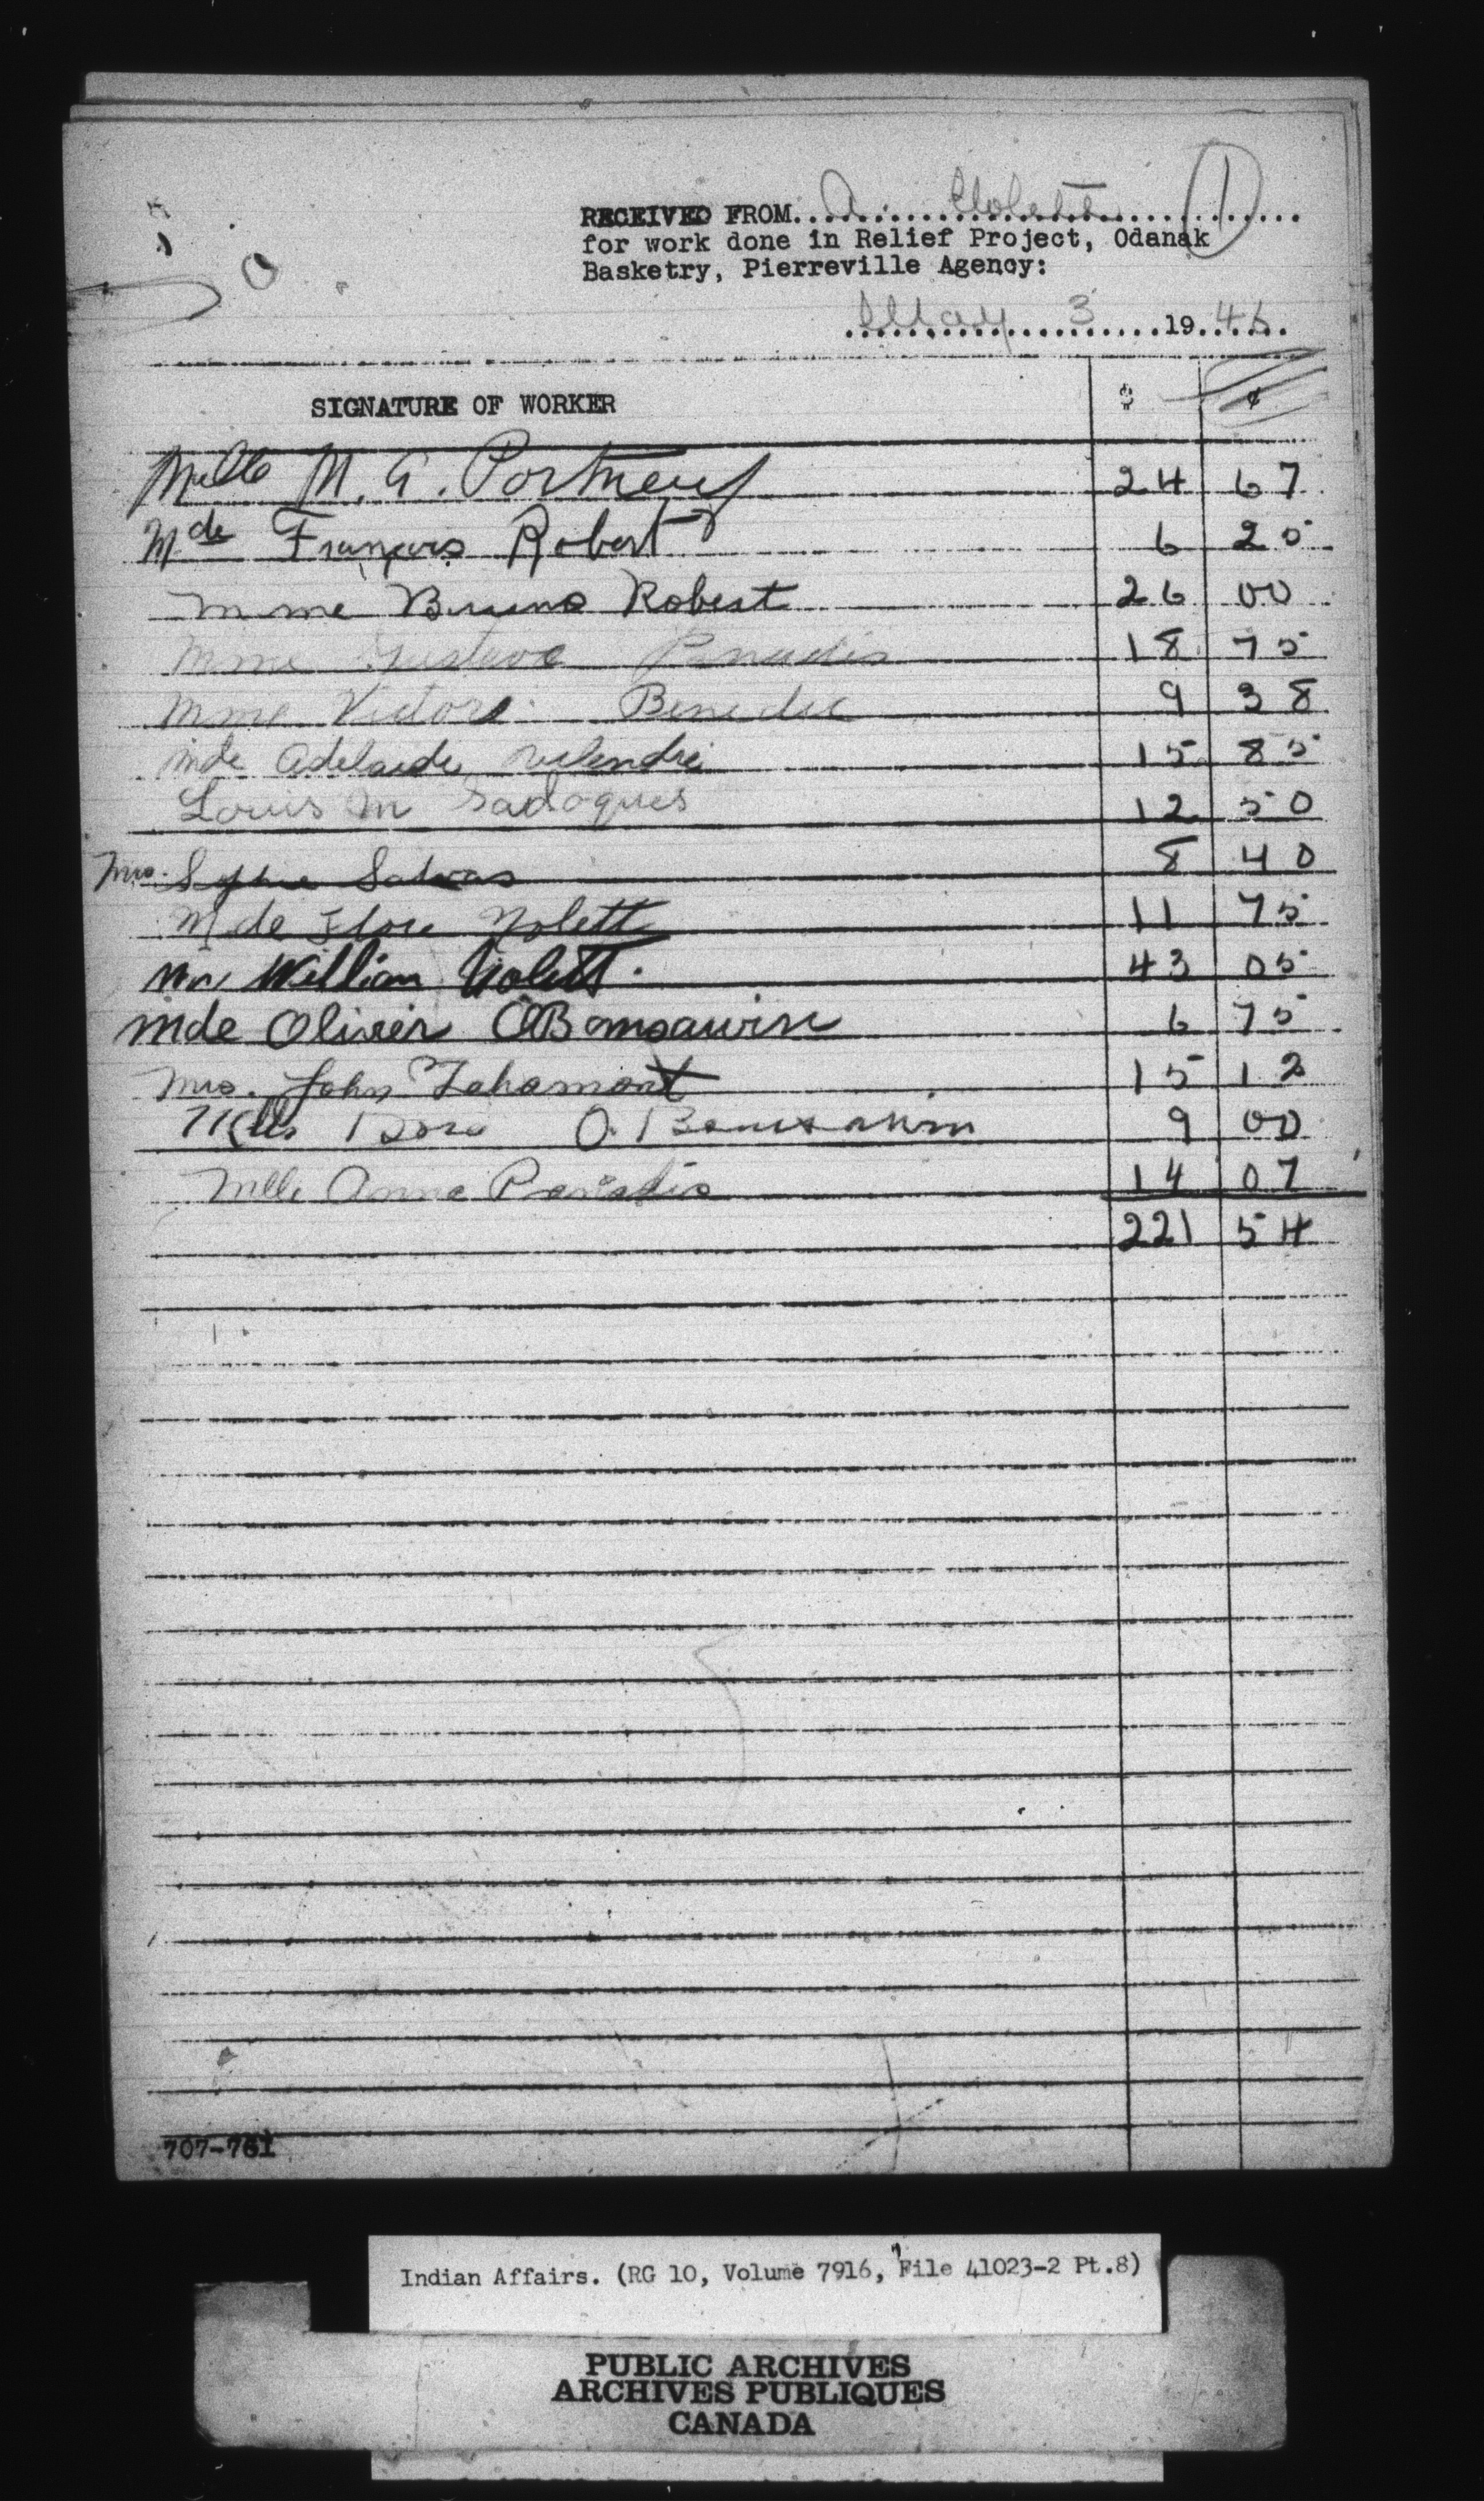 RECEIVED FROM A. Nolett 1
for work done in Relief Project, Odanak
Basketry, Pierreville Agency:
May 3 1946
SIGNATURE OF WORKER $ ¢
Melle M. A. Portneuf 24 67
Mde François Robert 6 25
Mme Bruno Robert 26 00
Mme Gustave Panadis 18 75
Mme Victore Benedic 9 38
Mde Adelaide 15 85
Louis M Sadoques 12 50
Mrs. Sophie Salvas 8 40
Mde Flore Nolett 11 75
William Nolett. 43 05
Mde Olivier OBomsawin 6 75
Mrs. John Tahamont 15 12
Melle Dora O.Bomsawin 9 00
Melle Anna Paradis 14 07
221 54
707-761
Indian Affairs. (RG 10, Volume 7916, File 41023-2 Pt.8)
PUBLIC ARCHIVES
ARCHIVES PUBLIQUES
CANADA